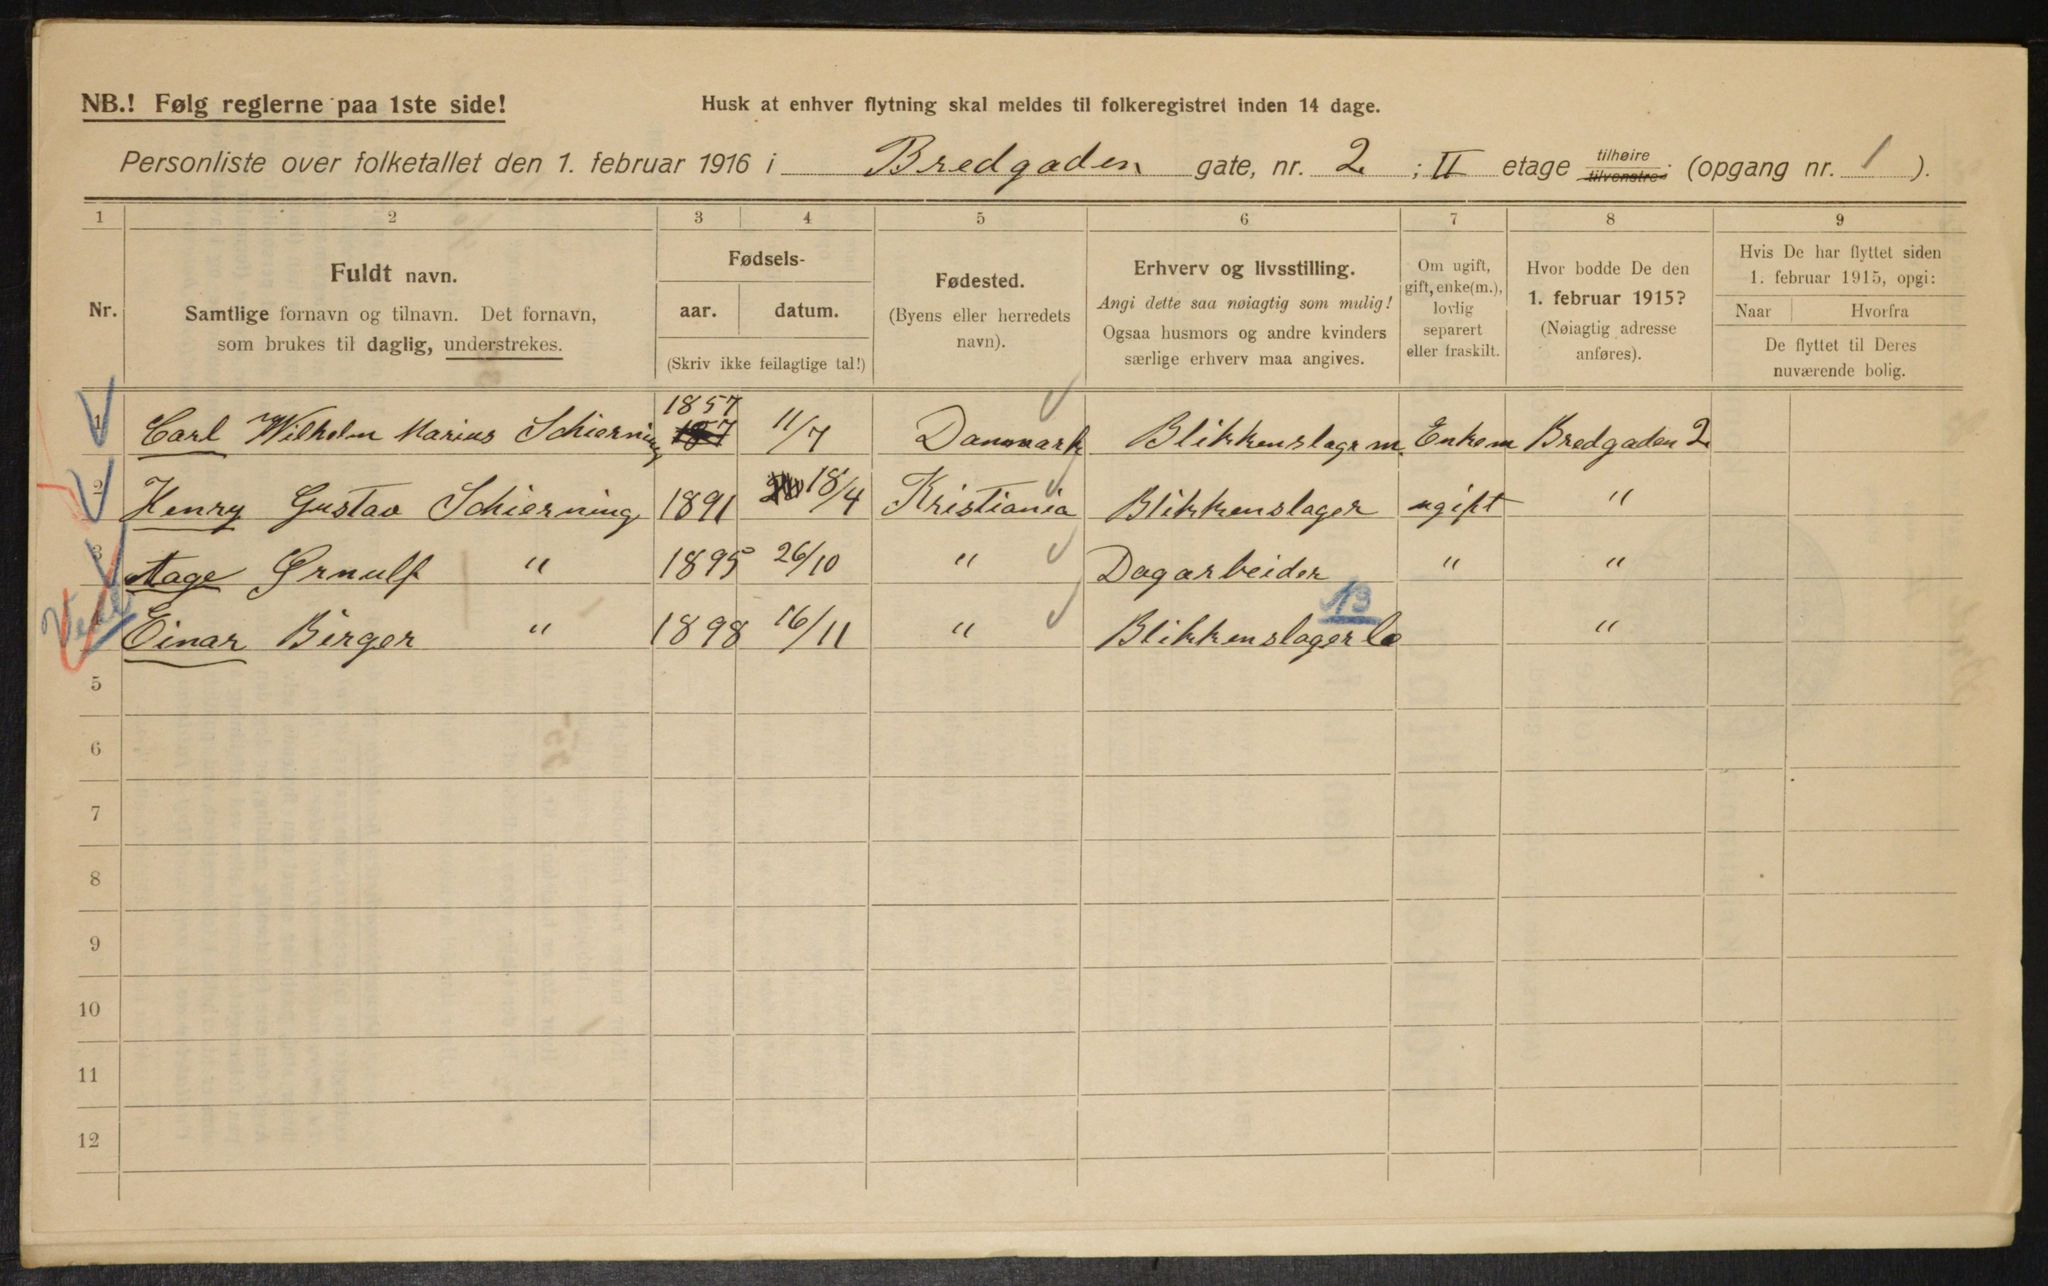 NB.! Følg reglerne paa 1ste side!
Husk at enhver flytning skal meldes til folkeregistret inden 14 dage.
Personliste over folketallet den 1. februar 1916 i Bredgaden gate, nr. 2 ; II etage tilhøire tilvenstre (opgang nr. 1 ).
1 2 3 4 5 6 7 8 9
Nr.
Fuldt navn.
Samtlige fornavn og tilnavn. Det fornavn,
som brukes til daglig, understrekes.
Fødsels-
aar. datum.
(Skriv ikke feilagtige tal!)
Fødested.
(Byens eller herredets
navn).
Erhverv og livsstilling.
Angi dette saa nøiagtig som mulig!
Ogsaa husmors og andre kvinders
særlige erhverv maa angives.
Om ugift,
gift, enke(m.),
lovlig
separert
eller fraskilt.
Hvor bodde De den
1. februar 1915?
(Nøiagtig adresse
anføres).
Hvis De har flyttet siden
1. februar 1915, opgi:
Naar Hvorfra
De flyttet til Deres
nuværende bolig.
1 Carl Wilhelm Marius Schierning 1857 11/7 Danmark Blikkenslagerm. Enkem Bredgaden 2
2 Henry Gustav Schierning 1891 18/4 Kristiania Blikkenslager ugift "
3 Aage Ørnulf " 1895 26/10 " Dagarbeider " "
13
4 Einar Birger " 1898 16/11 " Blikkenslagerlæ "
5
6
7
8
9
10
11
12